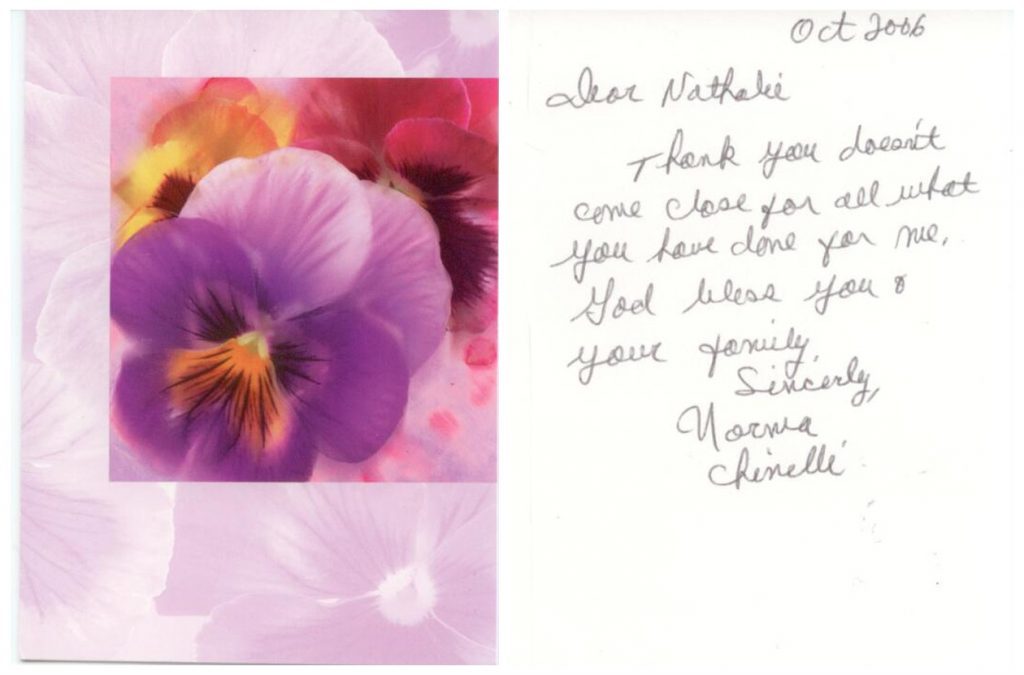 Oct 2006
Dear Nathalie
Thank you doesn't
come close for all what
you have done for me.
God bless you &
your family.
Sincerly,
Norma
Chinelli